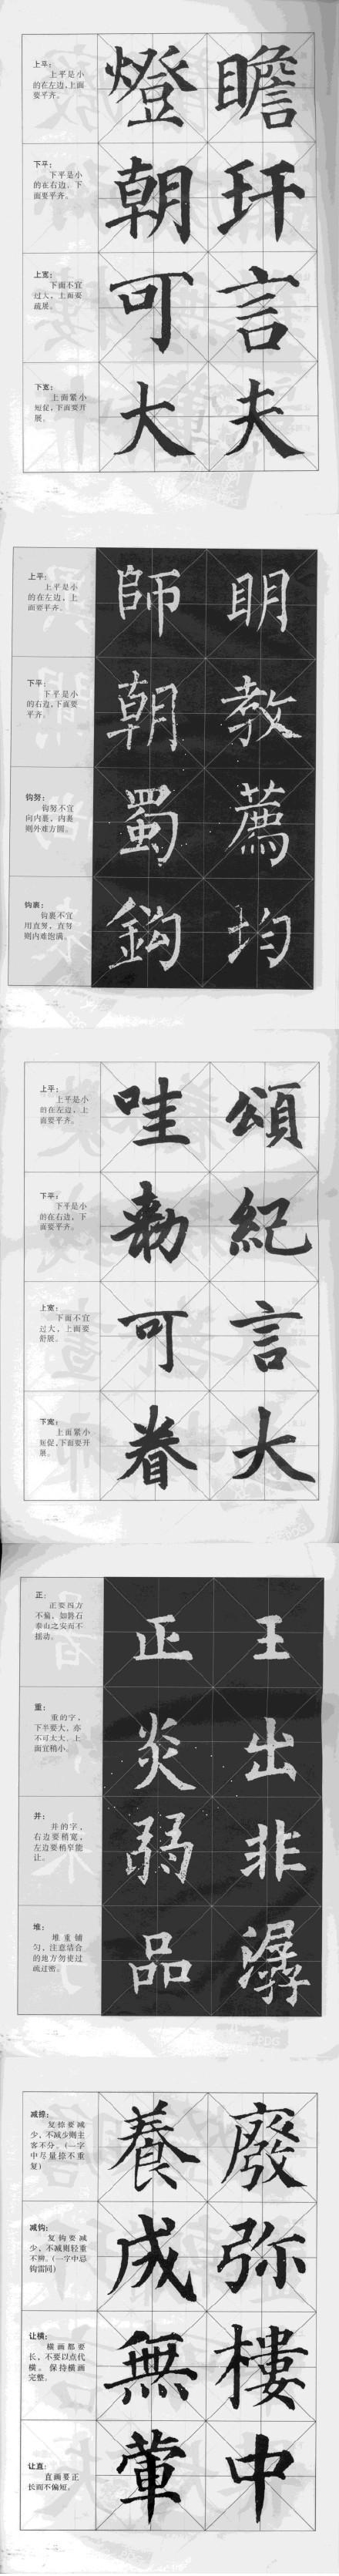 上平：
上平是小
的在左边，上面
要平齐。
燈 瞻
下平：
下平是小
的在右边，下
面要平齐。
朝 玕
上宽：
下面不宜
过大，上面要
疏展。
可 言
下宽：
上面紧小
短促，下面要开
展。
大 夫
上平：
上平是小
的在左边，上
面要平齐。
師 明
下平：
下平是小
的右边，下面要
平齐。
朝 教
钩努：
钩努不宜
向内裹，内裹
则外难方圆。
蜀 薦
钩裹：
钩裹不宜
用直努，直努
则内难饱满。
鈎 均
上平：
上平是小
的在左边，上
面要平齐。
哇 頌
下平：
下平是小
的在右边，下
面要平齐。
勅 紀
上宽：
下面不宜
过大，上面要
舒展。
可 言
下宽：
上面紧小
短促，下面要开
展。
眷 大
正：
正要四方
不偏，如磐石
泰山之安而不
摇动。
正 王
重：
重的字，
下半要大，亦
不可太大，上
面宜稍小。
炎 出
并：
并的字，
右边要稍宽，
左边要稍窄能
让。
弱 非
堆：
堆重铺
匀，注意结合
的地方勿使过
疏过密。
品 潺
减捺：
复捺要减
少，不减少则主
客不分。（一字
中尽量捺不重
复）
養 廢
减钩：
复钩要减
少，不减则轻重
不辨。（一字中忌
钩雷同）
成 弥
让横：
横画都要
长，不要以点代
横。保持横画
完整。
無 樓
让直：
直画要正
长而不偏短。
葷 中